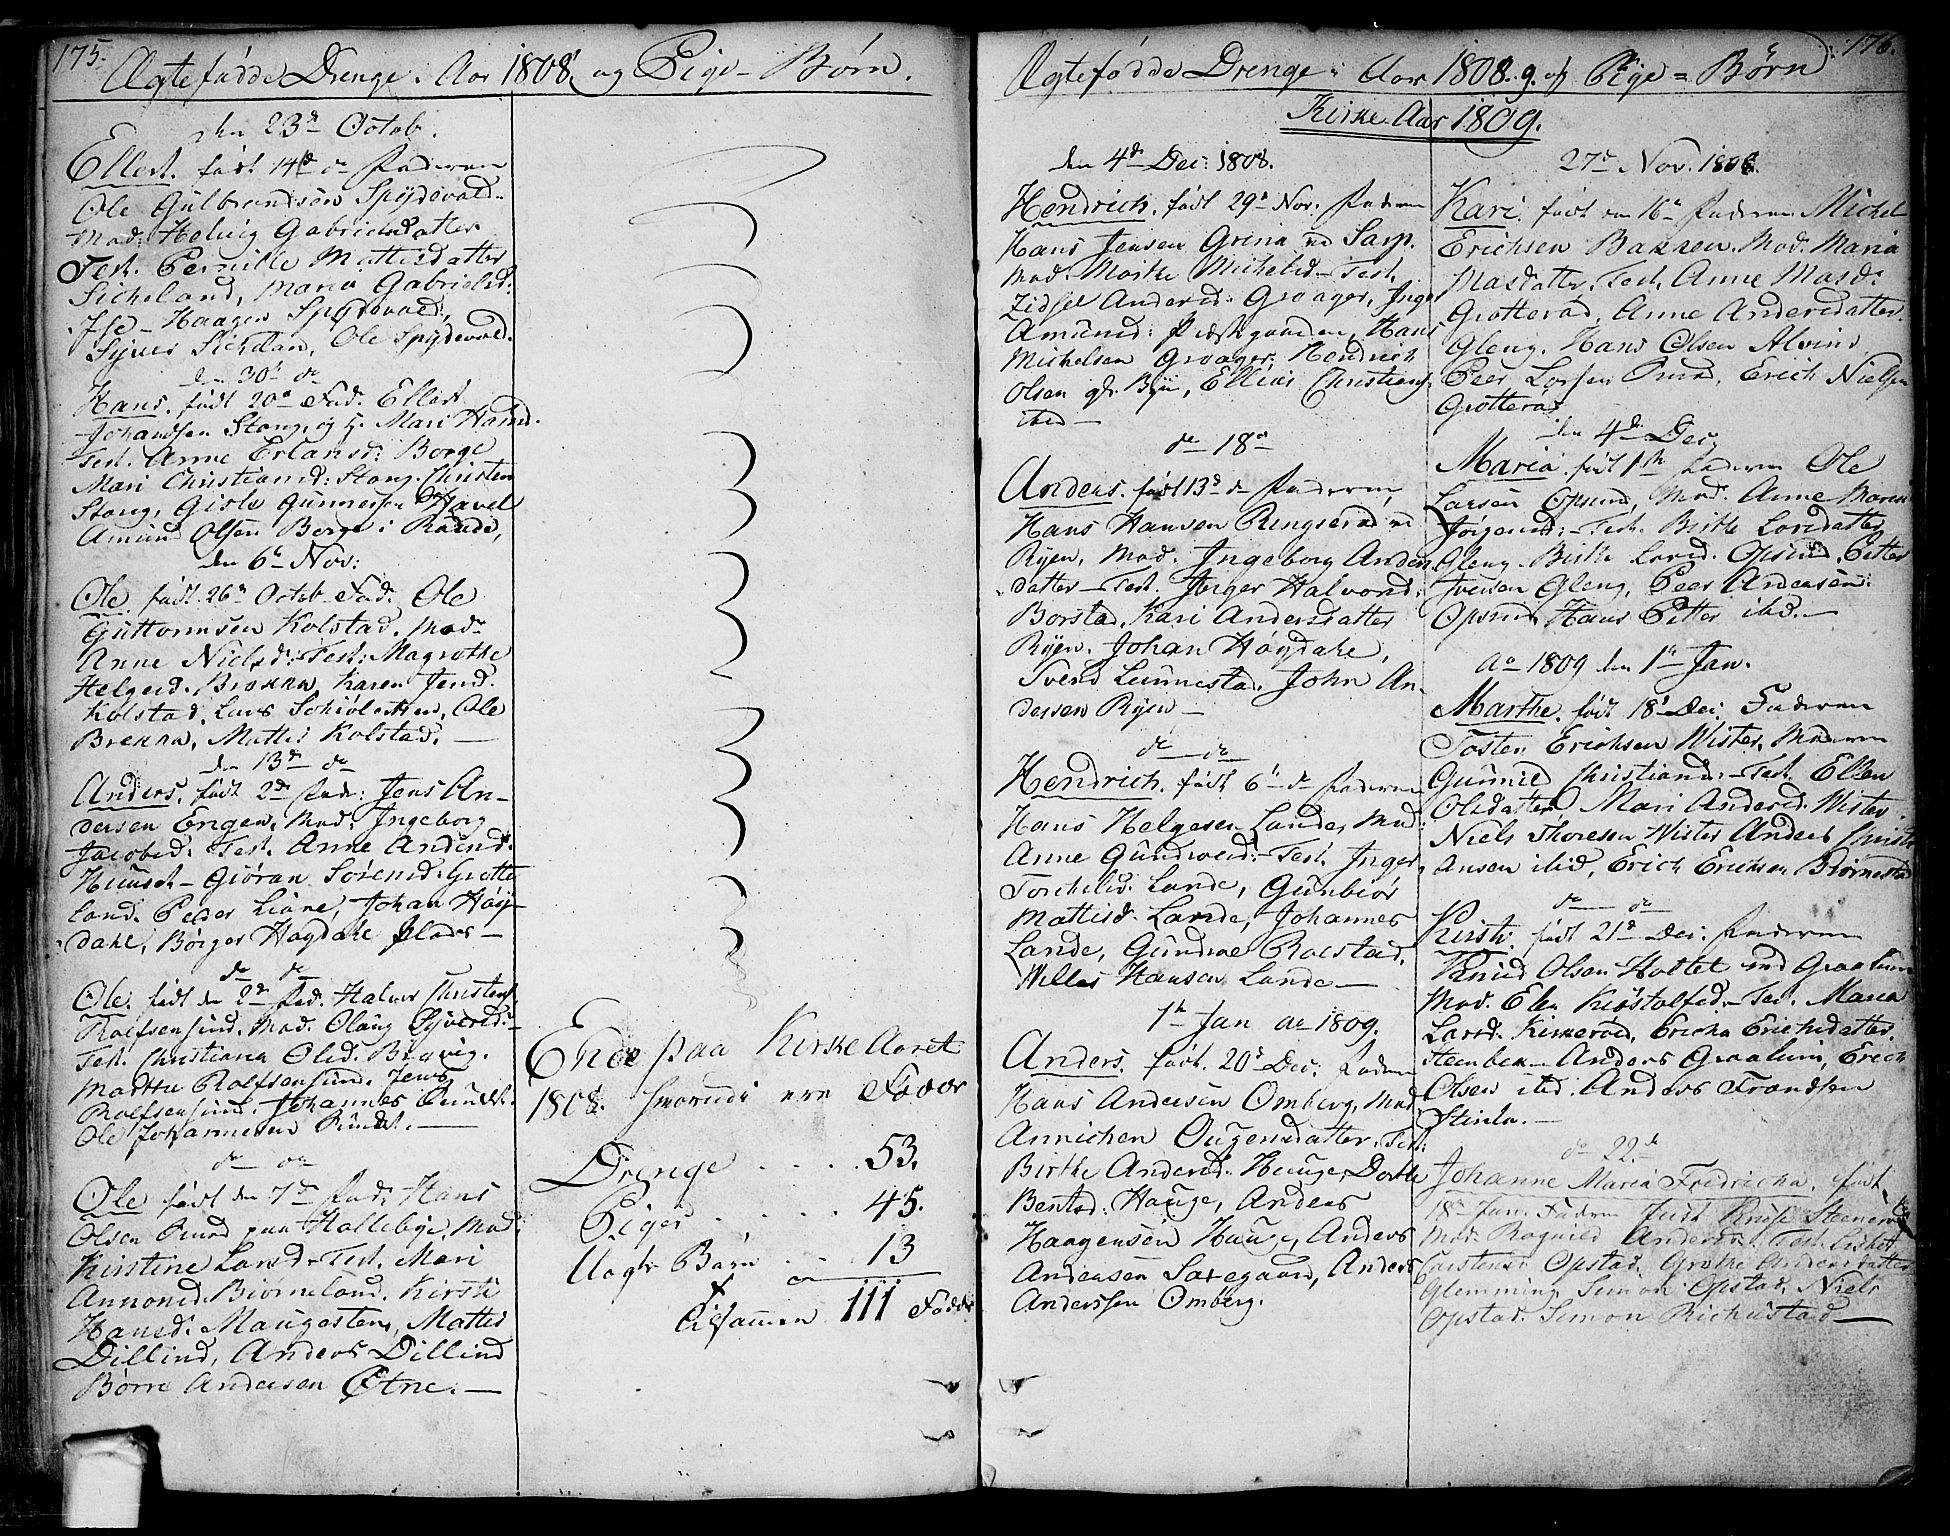 175.
Ægtefødde Drenge. Aar 1808. og Pige-Børn.
den 23de Octob.
Ellert. født 14de do Faderen
Ole Gulbrandsen Spydevold
Mod: Helvig Gabrielsdatter
Test. Pernille Mattisdatter
Sicheland, Maria Gabrielsd:
Haagen Spydevold,
Syver Sichelan, Ole Spydevold.
den 30te do
Hans. født 20de Fad. Ellert
Johansen Stang, og H. Mari Hansd.
Test. Anne Erlansd: Borge
Mari Christiansd: Stang. Christen
Stang, Gisle Gunnersen Havel
Amund Olsen Borge i Raade,
den 6te Nov:
Ole. født 26de Octob. Fad. Ole
Guttormsen Kolstad. Mod.
Anne Nielsd: Test: Magrethe
Helgesd. Brekka, Karen Jensd.
Kolstad, Lars Schioletten, Ole
Brekka, Mattis Kolstad. —
den 13de do
Anders, født 2de Fad: Jens An-
dersen Engen, Mod, Ingeborg
Jacobsd: Test. Anne Andersd.
Huuset - Giøran Sørensd. Grotte
land. Peder Liane, Johan Høy-
dahl, Børger Høgdahl Plads —
do do
Ole. født den 2de Fad: Halvor Christens.
Rolfsensund. Mod. Olaug Syversd:
Test. Christiana Olsd. Brevig.
Marthe Rolfsensund. Jens
Rolfsensund. Johannes Rundt.
Ole Johannesen Rundt. —
do do
Ole født den 7de Fad: Hans
Olsen Rud paa Hallebye, Mod:
Kirstine Larsd. Test. Mari
Amonsd. Biørneland. Kirsti
Hansd: Maugesten, Mattis
Dillind, Anders Dillind
Børre Andersen Øtne. —
Ende paa Kirke Aaret
1808. hvorudi ere Fødde
Drenge . . . . 53.
Piger . . . . . 45.
Uægte Børn . . . 13
Tilsammen 111 Fødde
176.
Ægtefødde Drenge Aar 1808. 9. og Pige = Børn
Kirke Aar 1809.
den 4de Dec: 1808.
Hendrich. født 29de Nov. Faderen
Hans Jensen Grina ved Sarp.
Mod. Marthe Michelsd. Test,
Zidsel Andersd: Graager, Inger
Amunsd: Præstgaarden, Hans
Michelsen Graager, Hendrich
Olsen Bye, Ellias Christians.
ibid —
do 18de
Anders. født 13de do Faderen,
Hans Hansen Ringserød ved
Ryen, Mod, Ingeborg Anders
datter — Test. Jnger Halvorsd.
Borstad. Kari Andersdatter
Ryen. Johan Høydahl,
Svend Lunnestad. John An-
dersen Ryen —
do do
Hendrich. født 6te do Faderen
Hans Helgesen Lande, Mod:
Anne Gundersd: Test. Inger
Torchelsd. Lande, Gunbiør
Mattisd. Lande, Johannes
Lande, Gundroe Rolstad.
Willas Hansen Lande —
1te Jan ao 1809.
Anders. født. 20de Dec: Faderen
Hans Andersen Omberg, Mod.
Annichen Ougensdatter, Test:
Birthe Andersd. Hauge, Dorthe
Bentsd. Hauge, Anders
Haagensen Hauge, Anders
Andersen Saxegaard, Anders
Anderssen Omberg.
27de Nov. 1808.
Kari. født den 16de Faderen Michel
Erichsen Bakken. Mod. Maria
Masdatter. Test, Anne Masd.
Grotterød, Anne Andersdatter
Gleng. Hans Olsen Alvim,
Peer Larsen Rud, Erich Nielsen
Grotterød
den 4de Dec.
Maria. født 1te Faderen Ole
Larsen Opsund, Mod. Anne Maria
Jørgensd: Test. Birthe Larsdatter
Gleng. Birthe Larsd. Opsund. Petter
Iversen Gleng, Peer Andersen
Opsund, Hans Petter ibid. —
Ao 1809 den 1te Jan.
Marthe. født 18de Dec: Faderen
Tosten Erichsen Wister. Moderen
Gunnil Christiansd. — Test. Ellen
Olsdatter, Mari Andersd. Wister.
Niels Thoresen Wister Anders Christi
ansen ibid, Erich Erichsen Biørnestad
do do
Kirsti. født 21de Dec: Faderen
Knud Olsen Holtet ved Graalum
Mod. Elen Kristofferd. Test. Maria
Larsd. Kirkerød, Ericha Erichsdatter
Steenbek — Anders Graalum, Erich
Olsen ibid. Anders Frandsen
Stinla. —
do 22de
Johanne Maria Fredricha. født
18de Jan. Faderen Just Kruse Steenerud
Mod. Ragnild Andersd. Test. Lisbet
Carstensd Opstad. Grethe Andersdatter
Glemming Simon Opstad, Niels
Opstad. Simon Richustad —